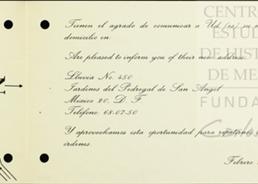 Tienen el agrado de comunicar a Ud. (es) su
domicilio en.
Are pleased to inform you of their new address
Lluvia No. 450
Jardines del Pedregal de San Angel
Mexico 20, D. F
Teléfono. 68-07-50
Y aprovechamos esta oportunidad para
órdenes.
Febrero
CENTRO
ESTU
DE HIST
DE ME
FUNDA